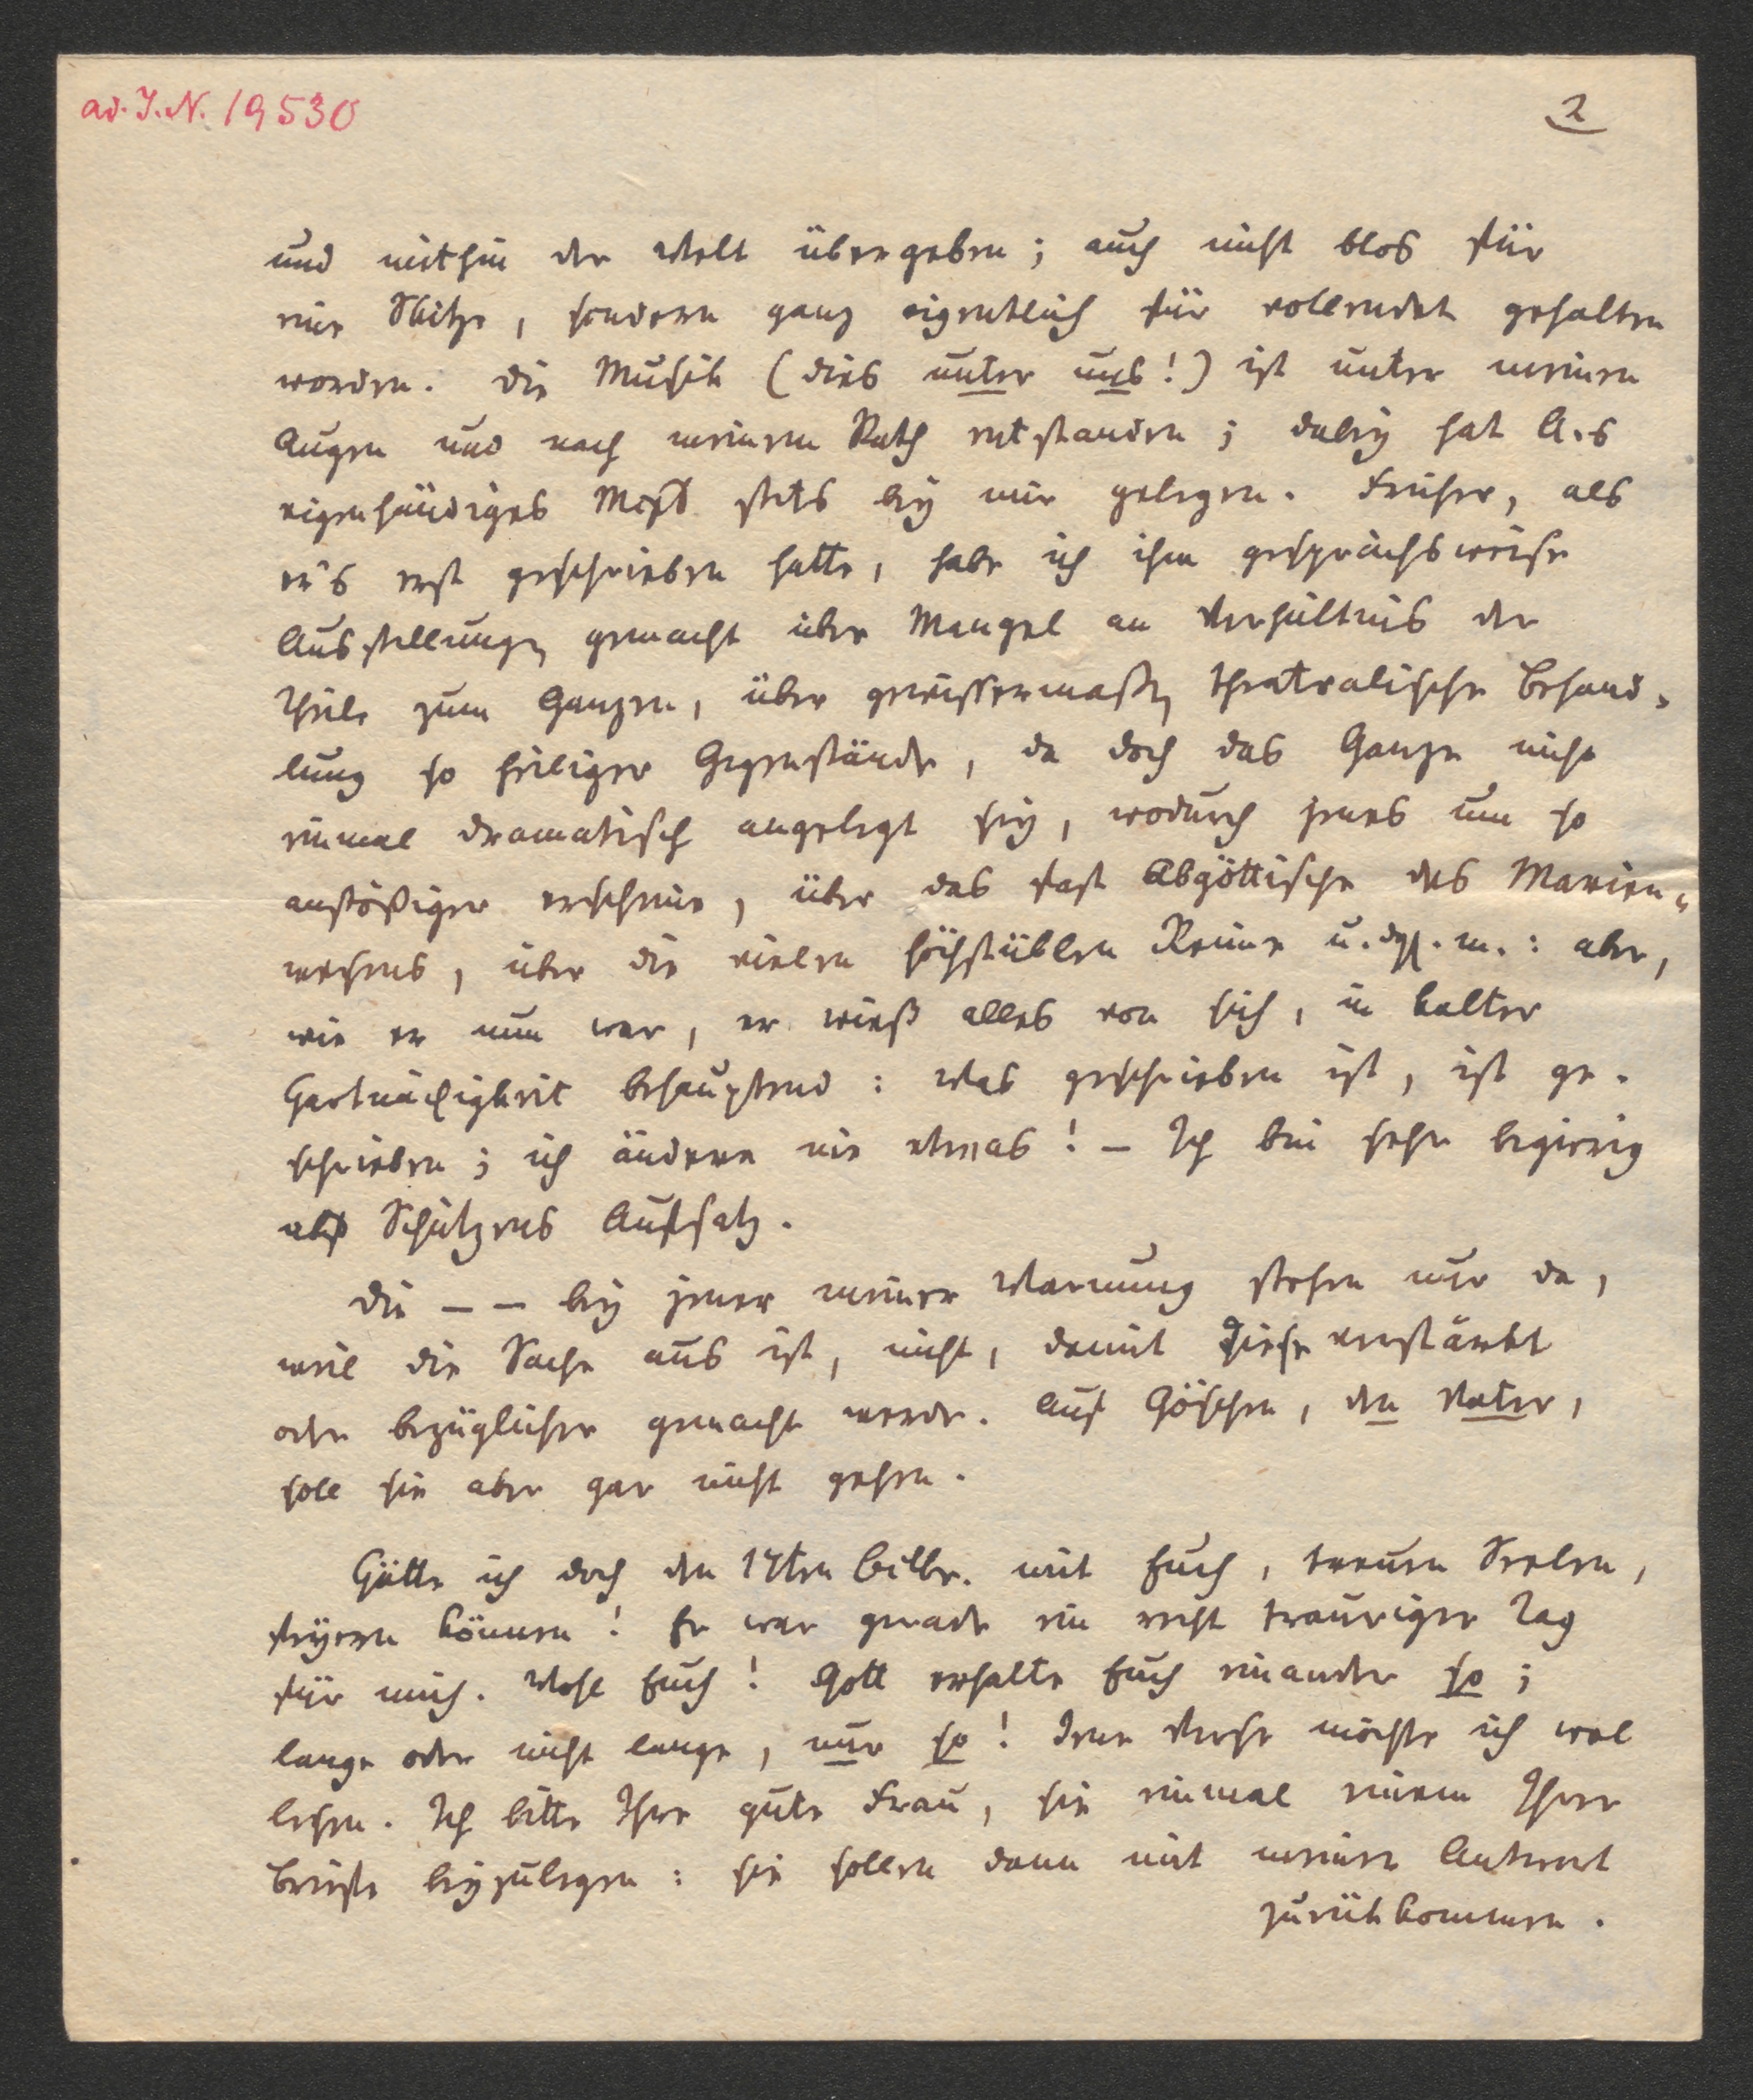 ad. I.N. 19530
2
und mithin der Welt übergeben; auch nicht blos für
eine Skitze, sondern ganz eigentlich für vollendet gehalten
worden. Die Musik (dies unter uns!) ist unter meinen
Augen und nach meinem Rath entstanden; dabey hat A.s
eigenhändiges Mspt stets bey mir gelegen. Früher, als
er's erst geschrieben hatte, habe ich ihm gesprächsweise
Ausstellungen gemacht über Mangel an Verhältnis der
Theile zum Ganzen, über gewissermaßen theatralische Behand-
lung so heiliger Gegenstände, da doch das Ganze nicht
einmal dramatisch angelegt sey, wodurch jenes um so
anstößiger erscheine, über das fast Abgöttische des Marien-
wesens, über die vielen höchstüblen Reime u. dgl. m.: aber,
wie er nun war, er wieß alles von sich, in kalter
Hartnäckigkeit behauptend: Was geschrieben ist, ist ge-
schrieben; ich ändere nie etwas! – Ich bin sehr begierig
auf Schützens Aufsatz.
Die – – bey jener meiner Warnung stehen nur da,
weil die Sache aus ist, nicht, damit diese verstärkt
oder bezüglicher gemacht werde. Auf Göschen, den Vater,
soll sie aber gar nicht gehen.
Hätte ich doch den 14ten 8br. mit Euch, treuen Seelen,
feyern können! Er war gerade ein recht trauriger Tag
für mich. Wohl Euch! Gott erhalte Euch einander so;
lange oder nicht lange, nur so! Jene Verse möchte ich wol
lesen. Ich bitte Ihre gute Frau, sie einmal einem Ihrer
Briefe beyzulegen: sie sollen dann mit meiner Antwort
zurükkommen.